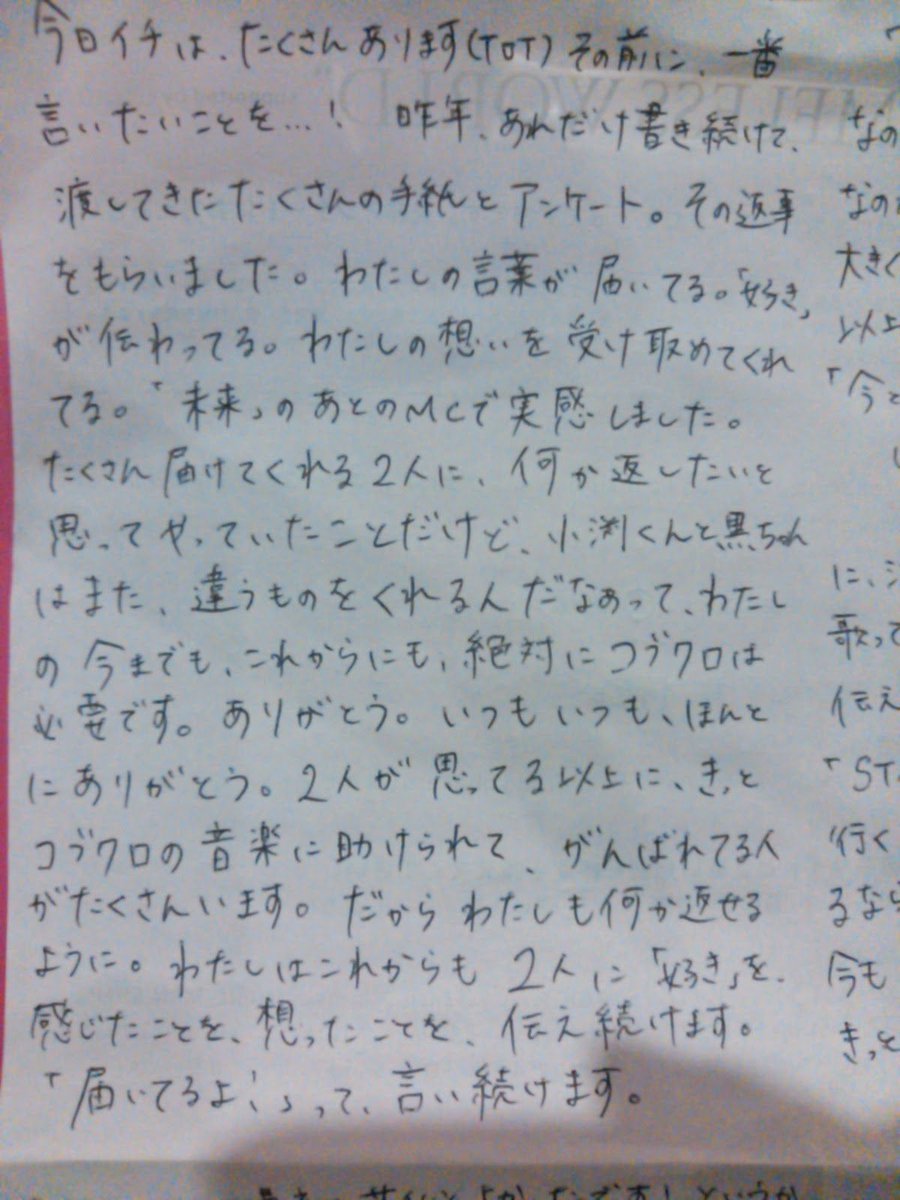 今日イチは、たくさんあります(TOT) その前に、一番
言いたいことを…! 昨年、あれだけ書き続けて、
渡してきたたくさんの手紙とアンケート。その返事
をもらいました。わたしの言葉が届いてる。「好き」
が伝わってる。わたしの想いを受け取めてくれ
てる。「未来」のあとのMCで実感しました。
たくさん届けてくれる2人に、何か返したいと
思ってやっていたことだけど、小渕くんと黒ちゃん
はまた、違うものをくれる人だなぁって、わたし
の今までも、これからにも、絶対にコブクロは
必要です。ありがとう。いつもいつも、ほんと
にありがとう。2人が思ってる以上に、きっと
コブクロの音楽に助けられて、がんばれてる人
がたくさんいます。だからわたしも何か返せる
ように。わたしはこれからも2人に「好き」を、
感じたことを、想ったことを、伝え続けます。
「届いてるよ!」って、言い続けます。
なの
なの
大きく
以上
「今と
に、
歌って
伝え
「ST
行く
るなら
今も
きっと